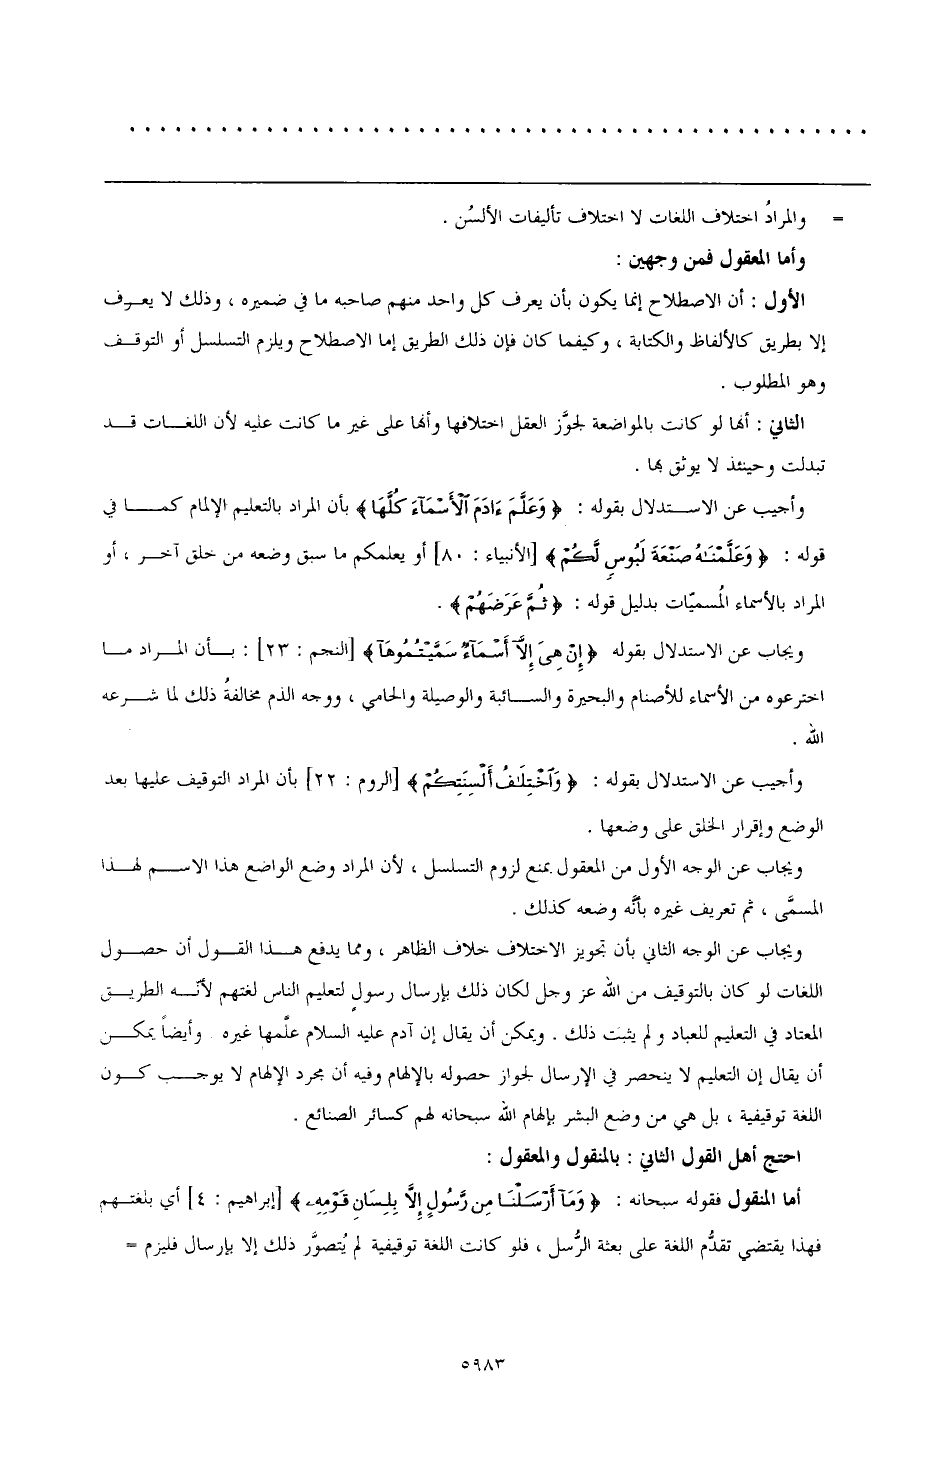 = والمرادُ اختلاف اللغات لا اختلاف تأليفات الألسُن .
وأما المعقول فمن وجهين :
الأول : أن الاصطلاح إنما يكون بأن يعرف كل واحد منهم صاحبه ما في ضميره ، وذلك لا يعرف
إلا بطريق كالألفاظ والكتابة ، وكيفما كان فإن ذلك الطريق إما الاصطلاح ويلزم التسلسل أو التوقف
وهو المطلوب .
الثاني : أنها لو كانت بالمواضعة لجوَّز العقل اختلافها وأنها على غير ما كانت عليه لأن اللغات قد
تبدلت وحينئذ لا يوثق بها .
وأجيب عن الاستدلال بقوله : ﴿ وَعَلَّمَ ءَادَمَ ٱلْأَسْمَآءَ كُلَّهَا ﴾ بأن المراد بالتعليم الإلهام كما في
قوله : ﴿ وَعَلَّمْنَـٰهُ صَنْعَةَ لَبُوسٍ لَّكُمْ ﴾ [الأنبياء : ٨٠] أو يعلمكم ما سبق وضعه من خلق آخر ، أو
المراد بالأسماء المُسميّات بدليل قوله : ﴿ ثُمَّ عَرَضَهُمْ ﴾ .
ويجاب عن الاستدلال بقوله ﴿ إِنْ هِىَ إِلَّآ أَسْمَآءٌ سَمَّيْتُمُوهَآ ﴾ [النجم : ٢٣] : بأن المراد ما
اخترعوه من الأسماء للأصنام والبحيرة والسائبة والوصيلة والحامي ، ووجه الذم مخالفةُ ذلك لما شرعه
الله .
وأجيب عن الاستدلال بقوله : ﴿ وَٱخْتِلَـٰفُ أَلْسِنَتِكُمْ ﴾ [الروم : ٢٢] بأن المراد التوقيف عليها بعد
الوضع وإقرار الخلق على وضعها .
ويجاب عن الوجه الأول من المعقول بمنع لزوم التسلسل ، لأن المراد وضع الواضع هذا الاسم لهذا
المسمَّى ، ثم تعريف غيره بأنَّه وضعه كذلك .
ويجاب عن الوجه الثاني بأن تجويز الاختلاف خلاف الظاهر ، ومما يدفع هذا القول أن حصول
اللغات لو كان بالتوقيف من الله عز وجل لكان ذلك بإرسال رسولٍ لتعليم الناس لغتهم لأنّه الطريق
المعتاد في التعليم للعباد و لم يثبت ذلك . ويمكن أن يقال إن آدم عليه السلام علَّمها غيره . وأيضاً يمكن
أن يقال إن التعليم لا ينحصر في الإرسال لجواز حصوله بالإلهام وفيه أن مجرد الإلهام لا يوجب كون
اللغة توقيفية ، بل هي من وضع البشر بإلهام الله سبحانه لهم كسائر الصنائع .
احتج أهل القول الثاني : بالمنقول والمعقول :
أما المنقول فقوله سبحانه : ﴿ وَمَآ أَرْسَلْنَا مِن رَّسُولٍ إِلَّا بِلِسَانِ قَوْمِهِۦ ﴾ [إبراهيم : ٤] أي بلغتهم
فهذا يقتضي تقدُّم اللغة على بعثة الرُّسل ، فلو كانت اللغة توقيفية لم يُتصوَّر ذلك إلا بإرسال فليزم =
٥٩٨٣